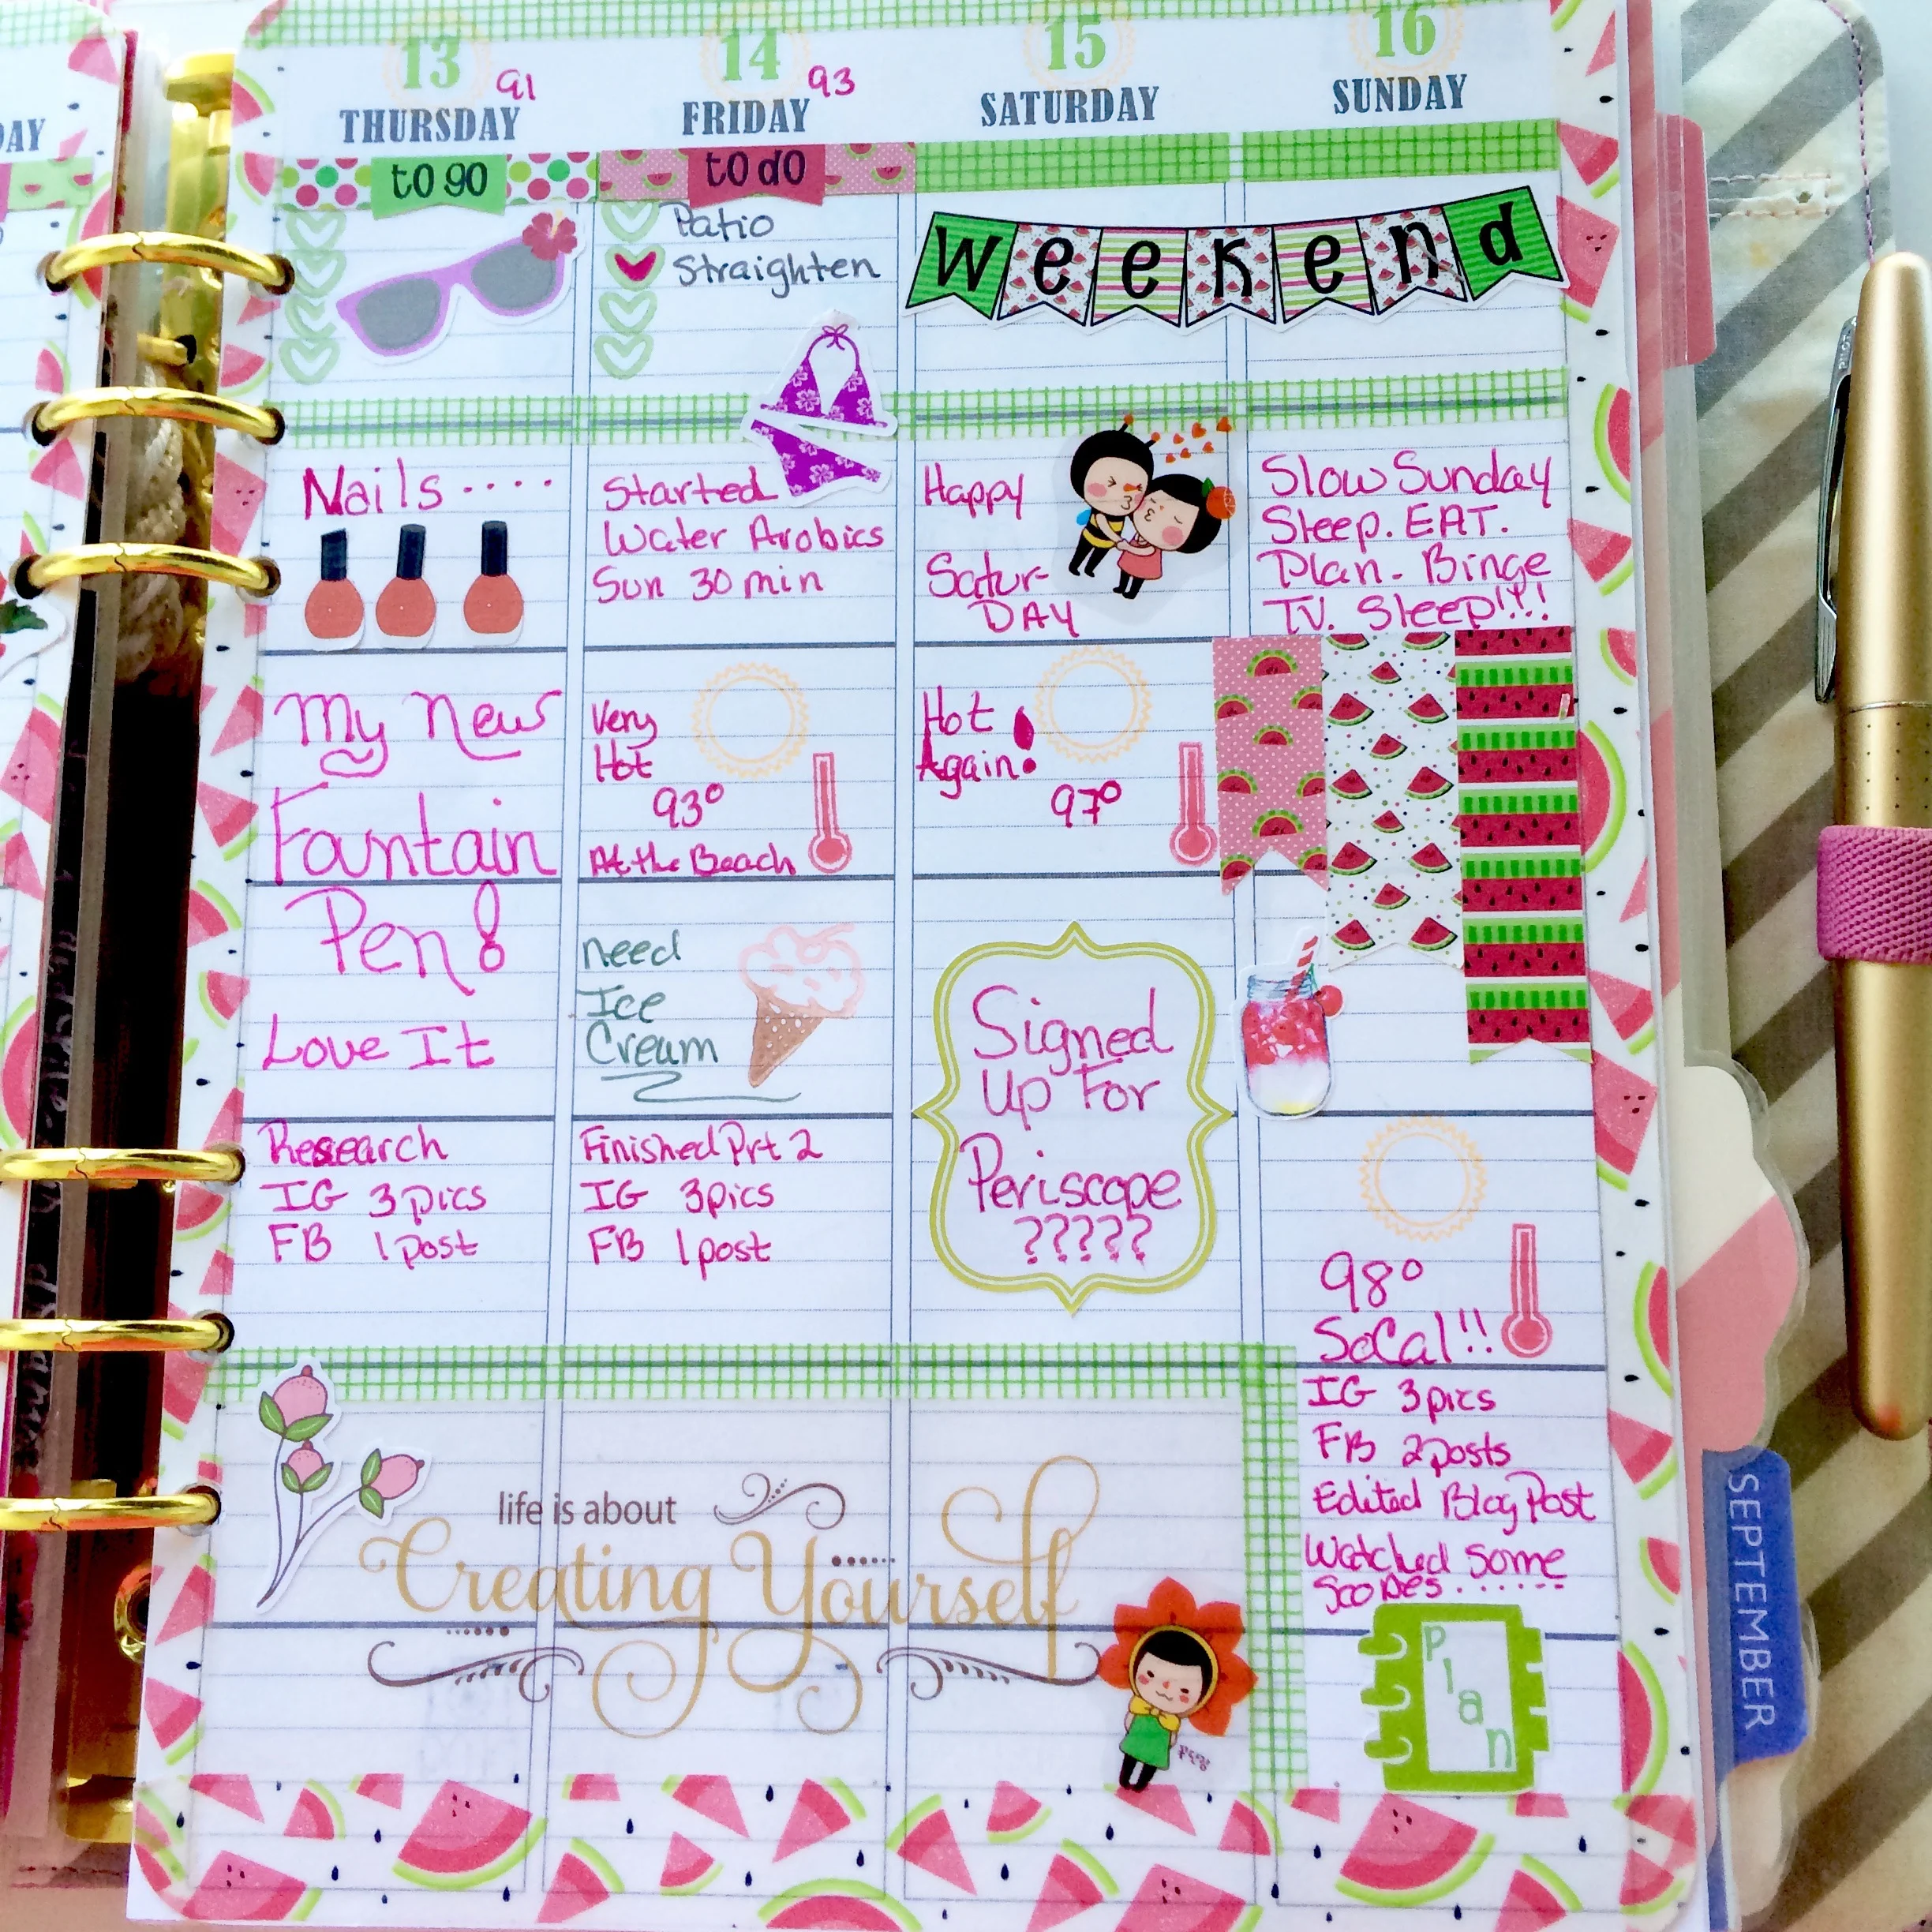 DAY
13
91
THURSDAY
to go
Nails ....
My New
Fountain
Pen!
Love It
Research
IG 3 pics
FB 1 post
14
93
FRIDAY
to do
Patio
Straighten
Started
Water Arobics
Sun 30 min
Very
Hot
93°
At the Beach
need
Ice
Cream
Finished Prt 2
IG 3 pics
FB 1 post
15
SATURDAY
Weekend
Happy
Satur-
DAY
Hot
Again!
97°
Signed
Up For
Periscope
?????
16
SUNDAY
Slow Sunday
Sleep. EAT.
Plan - Binge
TV. Sleep!!!
98°
SoCal!!
IG 3 pics
FB 2 posts
Edited Blog Post
Watched some
Scopes......
Plan
life is about
Creating Yourself
SEPTEMBER
PILOT